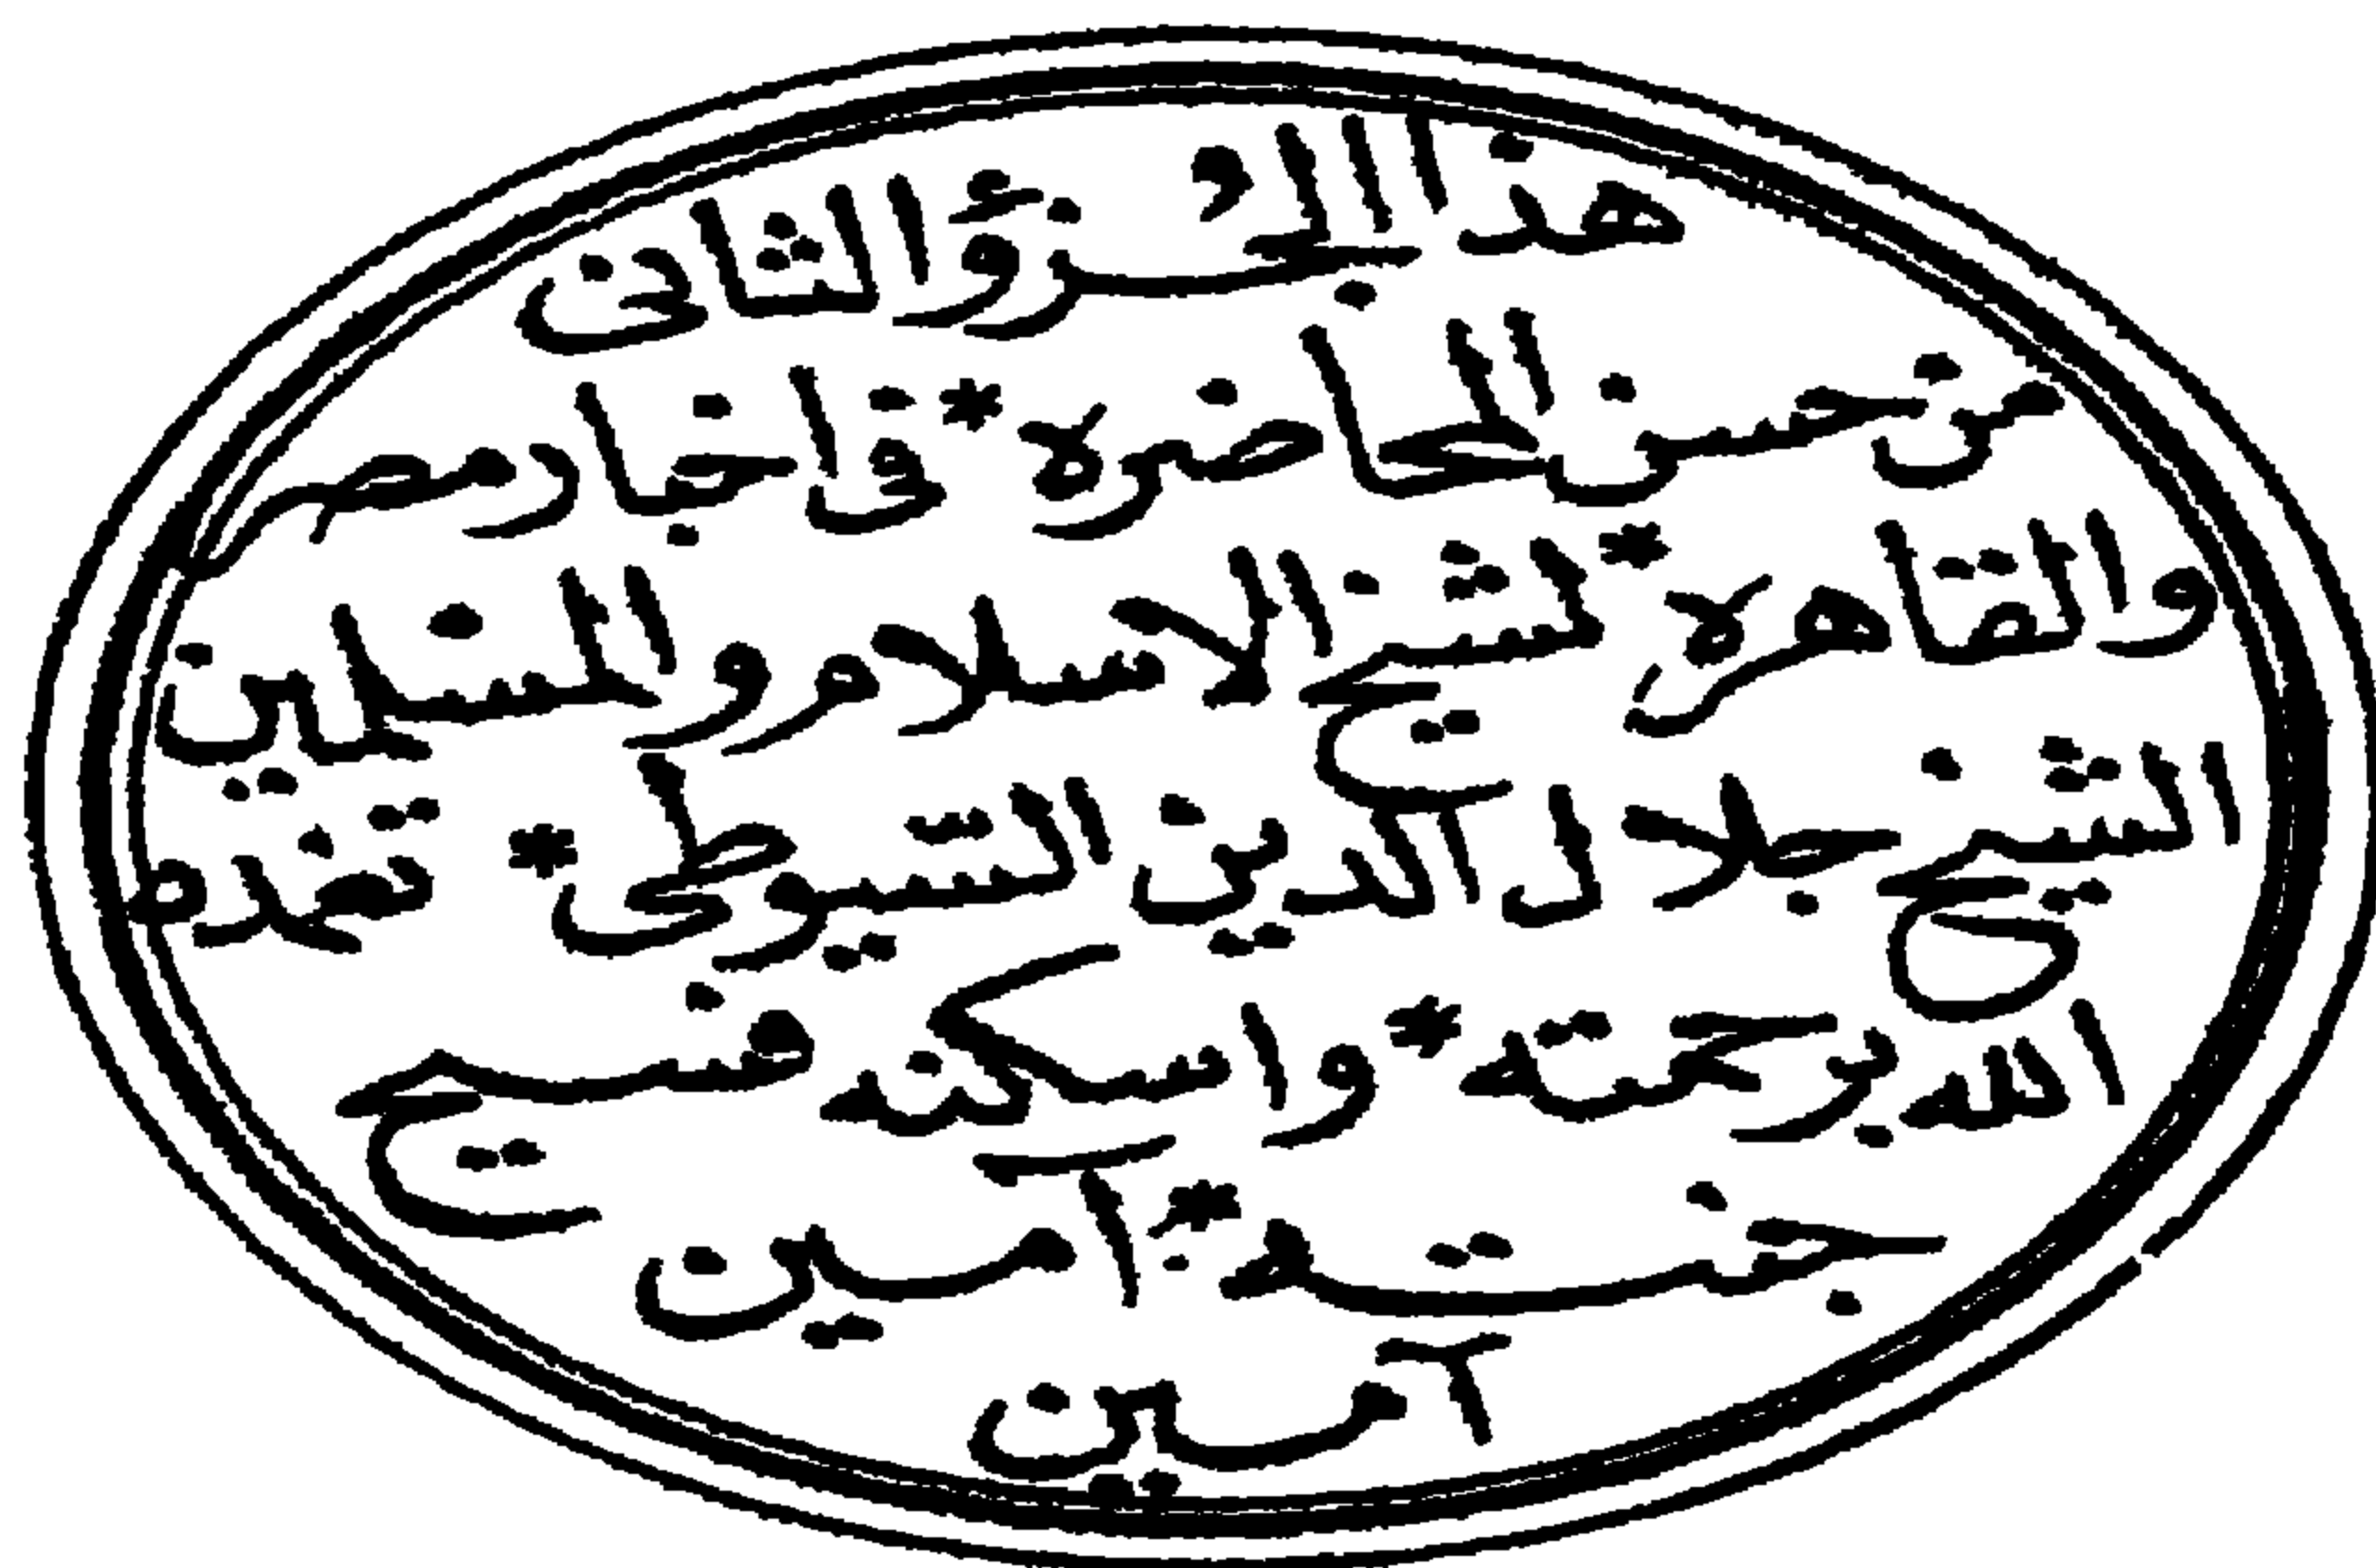 هذا الجزؤ الثانى
من حسن المحاضرة * فى اخبار مصر
والقاهرة * لشيخ الاسلام والمسلمين
الشيخ جلال الدين السيوطى * تغمده
الله برحمته * واسكنه فسيح
جنته * آمين
آمين